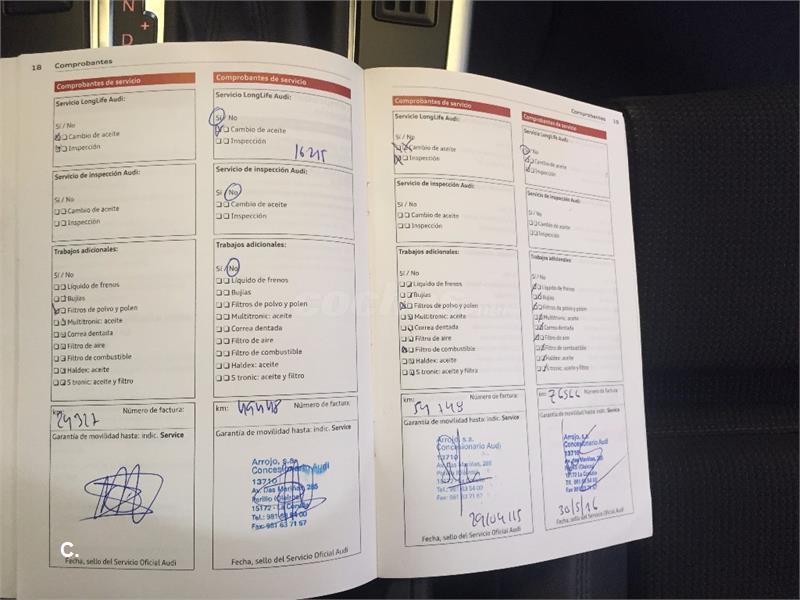 N
+
D
18 Comprobantes
Comprobantes de servicio
Servicio LongLife Audi:
Sí / No
Cambio de aceite
Inspección
Servicio de inspección Audi:
Sí / No
Cambio de aceite
Inspección
Trabajos adicionales:
Sí / No
Líquido de frenos
Bujías
Filtros de polvo y polen
Multitronic: aceite
Correa dentada
Filtro de aire
Filtro de combustible
Haldex: aceite
S tronic: aceite y filtro
km: Número de factura:
24327
Garantía de movilidad hasta: indic. Service
Fecha, sello del Servicio Oficial Audi
Comprobantes de servicio
Servicio LongLife Audi:
Sí / No
Cambio de aceite
Inspección
16215
Servicio de inspección Audi:
Sí / No
Cambio de aceite
Inspección
Trabajos adicionales:
Sí / No
Líquido de frenos
Bujías
Filtros de polvo y polen
Multitronic: aceite
Correa dentada
Filtro de aire
Filtro de combustible
Haldex: aceite
S tronic: aceite y filtro
km: Número de factura:
Garantía de movilidad hasta: indic. Service
Arrojo, s.a.
Concesionario Audi
13710
Av. Das Mariñas, 285
Perillo (Oleiros)
15172 - La Coruña
Tel.: 981 63 54 00
Fax: 981 63 71 67
Fecha, sello del Servicio Oficial Audi
Comprobantes de servicio
Servicio LongLife Audi:
Sí / No
Cambio de aceite
Inspección
Servicio de inspección Audi:
Sí / No
Cambio de aceite
Inspección
Trabajos adicionales:
Sí / No
Líquido de frenos
Bujías
Filtros de polvo y polen
Multitronic: aceite
Correa dentada
Filtro de aire
Filtro de combustible
Haldex: aceite
S tronic: aceite y filtro
km: Número de factura:
Garantía de movilidad hasta: indic. Service
Arrojo, s.a.
Concesionario Audi
13710
Av. Das Mariñas, 285
Perillo (Oleiros)
15172 - La Coruña
Tel.: 981 63 54 00
29/04/15
Fecha, sello del Servicio Oficial Audi
Comprobantes 19
Comprobantes de servicio
Servicio LongLife Audi:
No
Cambio de aceite
Inspección
Servicio de inspección Audi:
Sí / No
Cambio de aceite
Inspección
Trabajos adicionales:
Sí / No
Líquido de frenos
Bujías
Filtros de polvo y polen
Multitronic: aceite
Correa dentada
Filtro de aire
Filtro de combustible
Haldex: aceite
S tronic: aceite y filtro
km: Número de factura:
Garantía de movilidad hasta: indic. Service
Arrojo, s.a.
Concesionario Audi
13710
30/5/16
Fecha, sello del Servicio Oficial Audi
C.